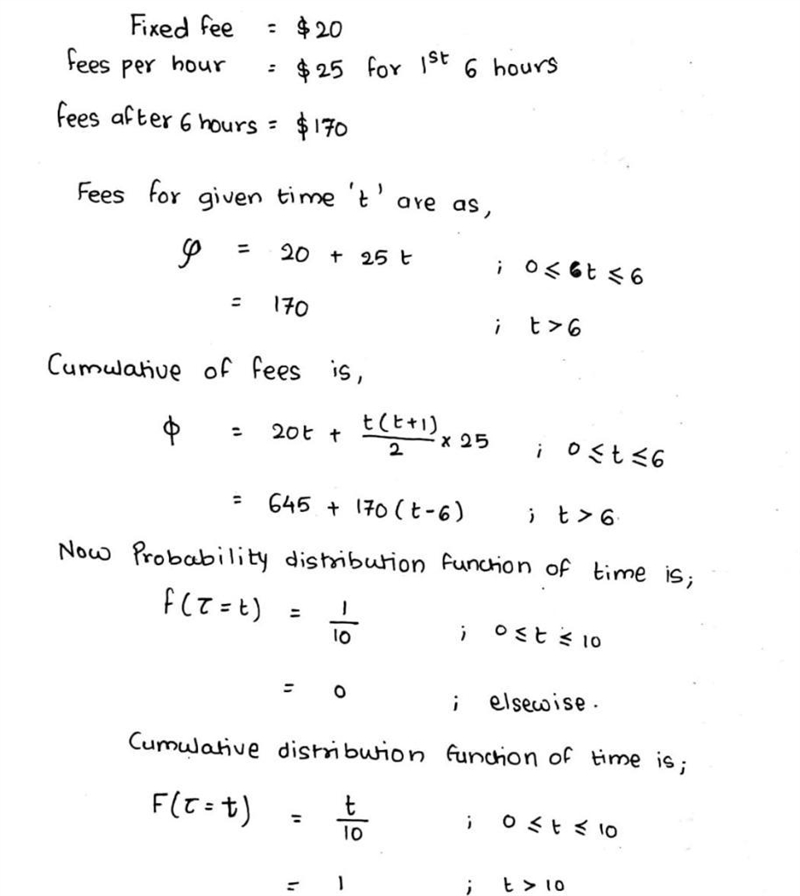 Fixed fee = $20
fees per hour = $25 for 1st 6 hours
fees after 6 hours = $170
Fees for given time 't' are as,
φ = 20 + 25 t ; 0 ≤ 6t ≤ 6
= 170 ; t > 6
Cumulative of fees is,
ϕ = 20t + t(t+1)/2 × 25 ; 0 ≤ t ≤ 6
= 645 + 170 (t-6) ; t > 6.
Now Probability distribution function of time is;
f(τ = t) = 1/10 ; 0 ≤ t ≤ 10
= 0 ; elsewise.
Cumulative distribution function of time is;
F(τ = t) = t/10 ; 0 ≤ t ≤ 10
= 1 ; t > 10